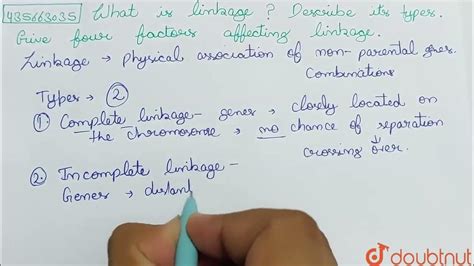 435663035 What is linkage? Describe its types.
Give four factors affecting linkage.
Linkage → physical association of non-parental genes.
Combinations
Types → 2
1. Complete linkage - genes → closely located on
the chromosome → no chance of separation
crossing over.
2. Incomplete linkage -
Genes → distant
doubtnut